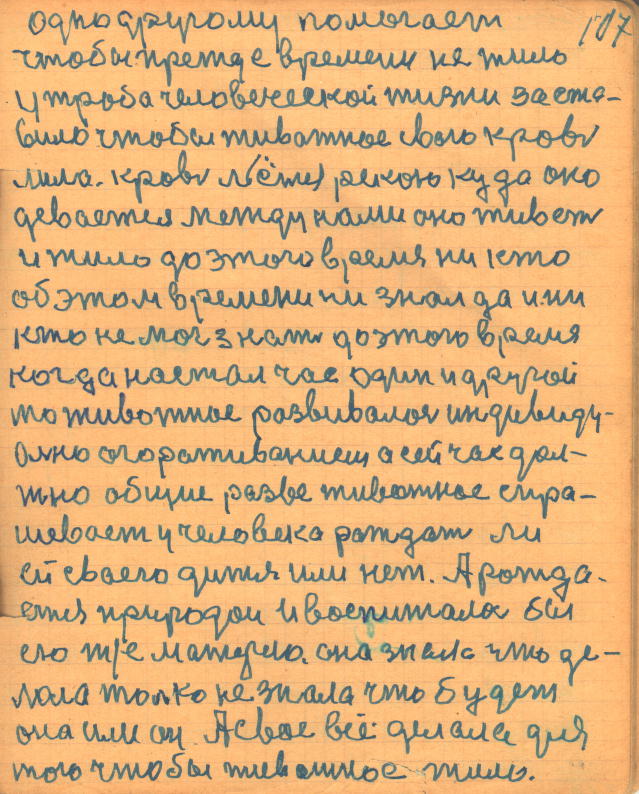 107
одно другому помогает
чтобы прежде времени не жило
утроба человеческой жизни заста-
вило чтобы животное свою кровь
лила. кровь льётся рекою куда оно
девается между нами оно живеть
и жило до этого время ни кто
об этом времени ни знал да и ни
кто не мог знать до этого время
когда настал час один и другой
то животное развивалося индивиду-
ално огораживанием а сейчас дол-
жно общие разве животное спра-
шевает у человека рождать ли
ей своего дитя или нет. А рожда-
ется природой и воспитала бы
его же матерю. она знала что де-
лала толко не знала что будет
она или он. А свое всё делала для
того чтобы животное жило.